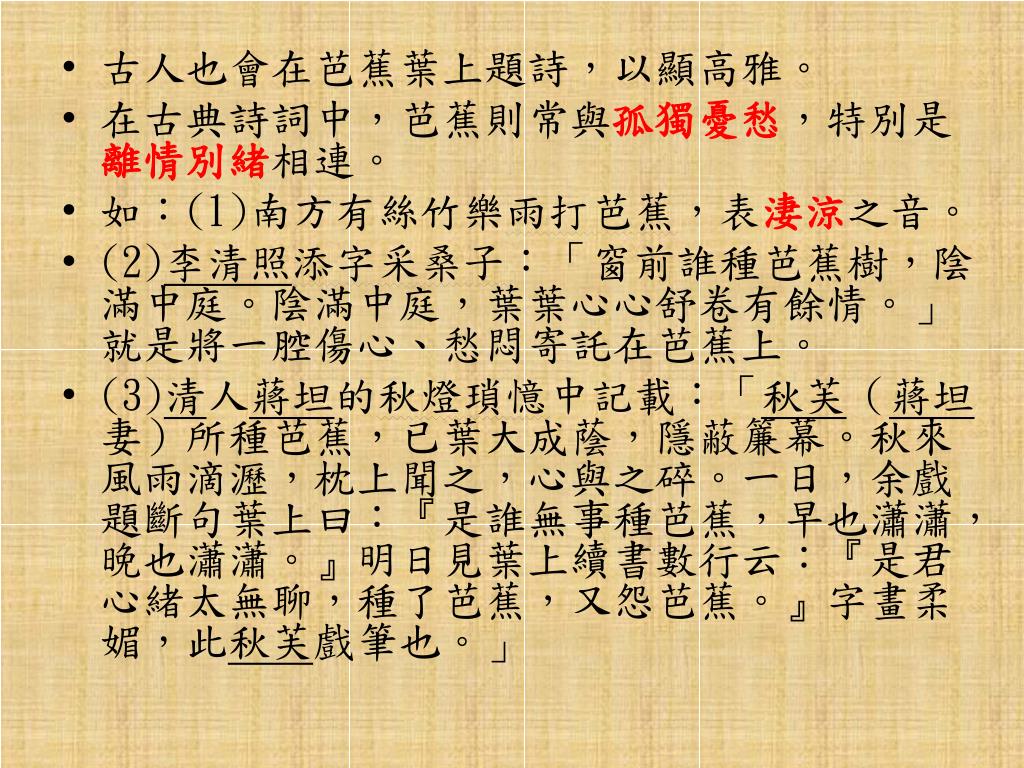 • 古人也會在芭蕉葉上題詩，以顯高雅。
• 在古典詩詞中，芭蕉則常與孤獨憂愁，特別是
離情別緒相連。
• 如：(1)南方有絲竹樂雨打芭蕉，表淒涼之音。
• (2)李清照添字采桑子：「窗前誰種芭蕉樹，陰
滿中庭。陰滿中庭，葉葉心心舒卷有餘情。」
就是將一腔傷心、愁悶寄託在芭蕉上。
• (3)清人蔣坦的秋燈瑣憶中記載：「秋芙（蔣坦
妻）所種芭蕉，已葉大成蔭，隱蔽簾幕。秋來
風雨滴瀝，枕上聞之，心與之碎。一日，余戲
題斷句葉上曰：『是誰無事種芭蕉，早也瀟瀟，
晚也瀟瀟。』明日見葉上續書數行云：『是君
心緒太無聊，種了芭蕉，又怨芭蕉。』字畫柔
媚，此秋芙戲筆也。」